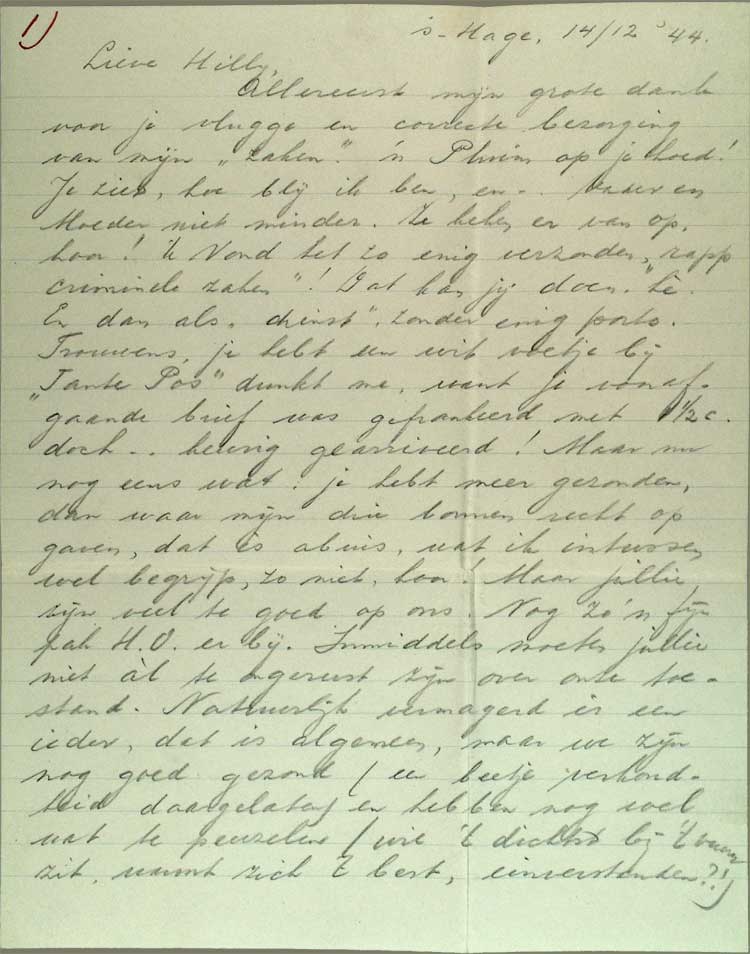 1)
's-Hage, 14/12 '44.
Lieve Hilly,
Allereerst mijn grote dank
voor je vlugge en correcte bezorging
van mijn „zaken". 'n Pluim op je hoed!
Je ziet, hoe blij ik ben, en.. Vader en
Moeder niet minder. Ze keken er van op,
hoor! 'k Vond het zo enig verzonden,
criminele zaken"! Dat kan jij doen. hè.
En dan als „dienst", zonder enig porto.
Trouwens, je hebt een wit voetje bij
„Tante Pos" dunkt me, want je vooraf-
gaande brief was gefrankeerd met 1½ c.
doch.. keurig gearriveerd! Maar nu
nog eens wat: je hebt meer gezonden,
dan waar mijn drie bonnen recht op
gaven, dat is abuis, wat ik intussen
wel begrijp, zo niet, hoor! Maar jullie
zijn veel te goed op ons. Nog zo'n fijn
pak H.O. er bij. Inmiddels moeten jullie
niet àl te ongerust zijn over onze toe-
stand. Natuurlijk vermagerd is een
ieder, dat is algemeen, maar we zijn
nog goed gezond (een beetje verkoud-
heid daargelaten) en hebben nog wel
wat te peuzelen (wie 't dichtst bij 't vuur
zit, warmt zich 't best, einverstanden?!)